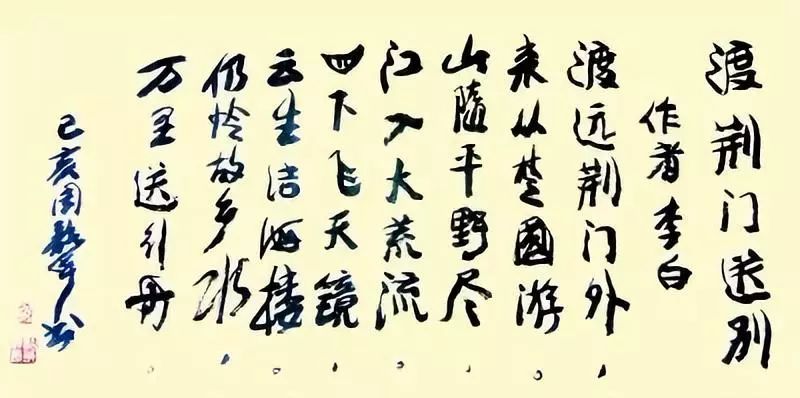 渡荆门送别
作者李白
渡远荆门外，
来从楚國游。
山隨平野尽，
江入大荒流。
四下飞天镜，
云生洁海楼。
仍怜故乡水，
万里送行舟。
己亥周